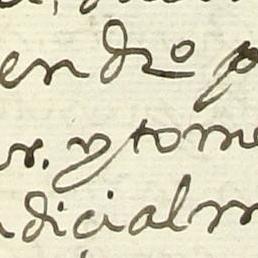 en dro p
or. y tome
udicialm